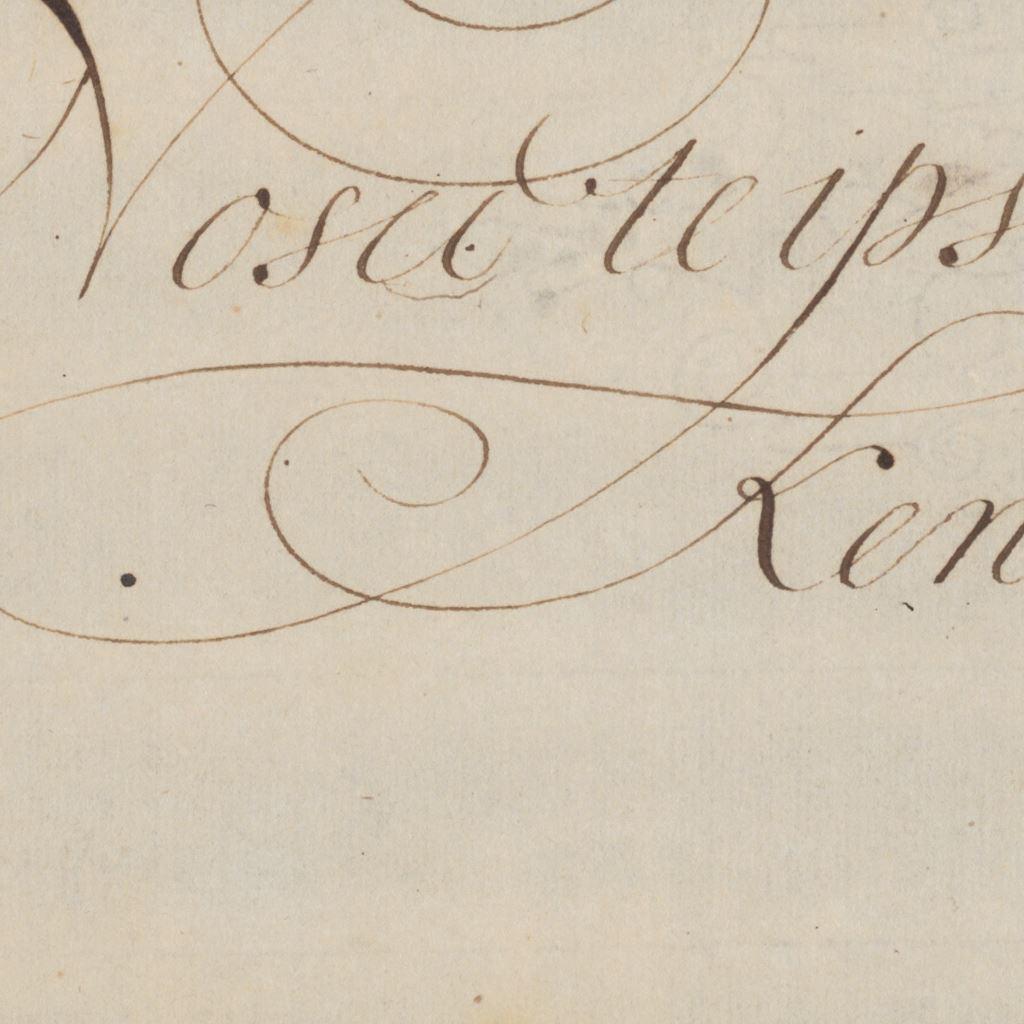 Nosce teips
Ken